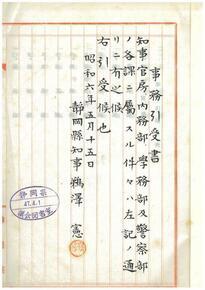 事務引受書
知事官房内務部學務部及警察部
ノ各課ニ屬スル件々ハ左記ノ通
リニ有之候
右引受候也
昭和六年五月十五日
靜岡縣知事鵜澤憲
静岡県
47.4.1